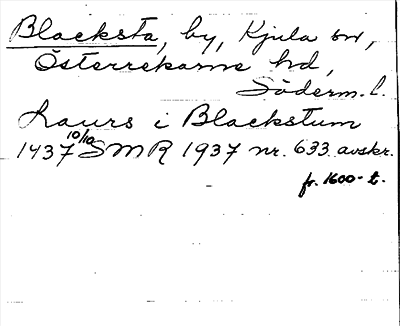 Blacksta, by, Kjula sn,
Österrekarne hd,
Söderm. l.
Laurs i Blackstum
1437 10/10 SMR 1937 nr. 633 avskr.
fr. 1600-t.